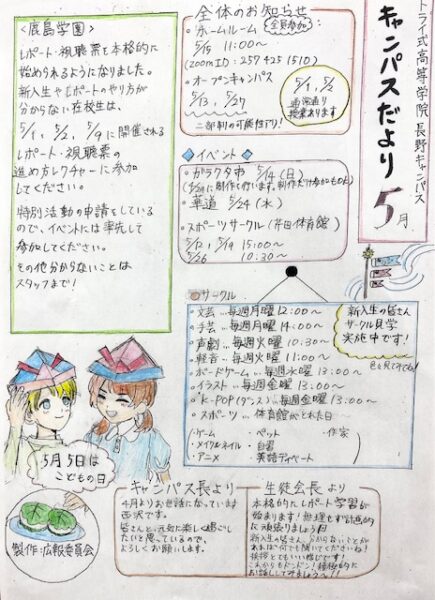 トライ式高等学院 長野キャンパス
キャンパスだより 5月
全体のお知らせ
・ホームルーム 全員参加!
5/15 11:00〜
(zoomID: 257 425 1510)
・オープンキャンパス
5/13, 5/27
二部制の可能性アリ!
5/1, 5/2
通常通り
授業あります
<鹿島学園>
レポート・視聴票を本格的に
始められるようになりました。
新入生やレポートのやり方が
分からない在校生は、
5/1, 5/2, 5/9 に開催される
レポート・視聴票の
進め方レクチャーに参加
してください。
特別活動の申請をしている
ので、イベントには率先して
参加してください。
その他分からないことは
スタッフまで!
イベント
・ガラクタ市 5/14 (日)
・華道 5/24 (水)
・スポーツサークル (井田体育館)
5/12, 5/19 15:00〜
5/26 10:30〜
サークル
・文芸…毎週月曜 12:00〜
・手芸…毎週月曜 14:00〜
・声劇…毎週火曜 10:30〜
・軽音…毎週火曜 11:00〜
・ボードゲーム…毎週金曜 13:00〜
・イラスト…毎週金曜 13:00〜
・K-POP(ダンス)…毎週金曜 13:00〜
・スポーツ…体育館がとれた日
・ゲーム ・ペット ・作家
・メイクルネイル ・自習
・アニメ ・英語ディベート
新入生の皆さん
サークル見学
実施中です!
5月5日は
こどもの日
製作:広報委員会
キャンパス長より
4月よりお世話になっています
西沢です。
皆さんと元気に楽しく過ごし
たいと思っているので、
よろしくお願いします。
生徒会長より
本格的にレポート学習が
始まります!無理せず計画的
に頑張りましょう!!
新入生の皆さん、分からないことが
あれば何でも聞いてくださいね!